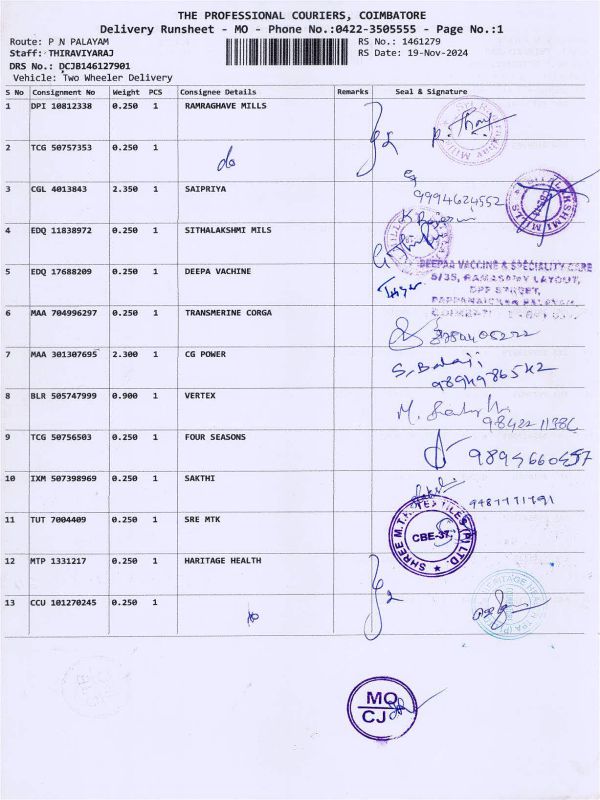 THE PROFESSIONAL COURIERS, COIMBATORE
Delivery Runsheet - MO - Phone No.:0422-3505555 - Page No.:1
Route: P N PALAYAM RS No.: 1461279
Staff: THIRAVIYARAJ RS Date: 19-Nov-2024
DRS No.: DCJB146127901
Vehicle: Two Wheeler Delivery
S No Consignment No Weight PCS Consignee Details Remarks Seal & Signature
1 DPI 10812338 0.250 1 RAMRAGHAVE MILLS
2 TCG 50757353 0.250 1 do
3 CGL 4013843 2.350 1 SAIPRIYA 9994624552
4 EDQ 11838972 0.250 1 SITHALAKSHMI MILS
5 EDQ 17688209 0.250 1 DEEPA VACHINE
DEEPAA VACCINE & SPECIALITY CARE
5/35, RAMASAMY LAYOUT,
DPF STREET,
PAPPANAICKEN PALAYAM,
6 MAA 704996297 0.250 1 TRANSMERINE CORGA
7 MAA 301307695 2.300 1 CG POWER S. Balaji
9894986542
8 BLR 505747999 0.900 1 VERTEX
9 TCG 50756503 0.250 1 FOUR SEASONS
10 IXM 507398969 0.250 1 SAKTHI
11 TUT 7004409 0.250 1 SRE MTK
SHREE M.T.K TEXTILES (P) LTD.
CBE-37
12 MTP 1331217 0.250 1 HARITAGE HEALTH
13 CCU 101270245 0.250 1
MO
CJ